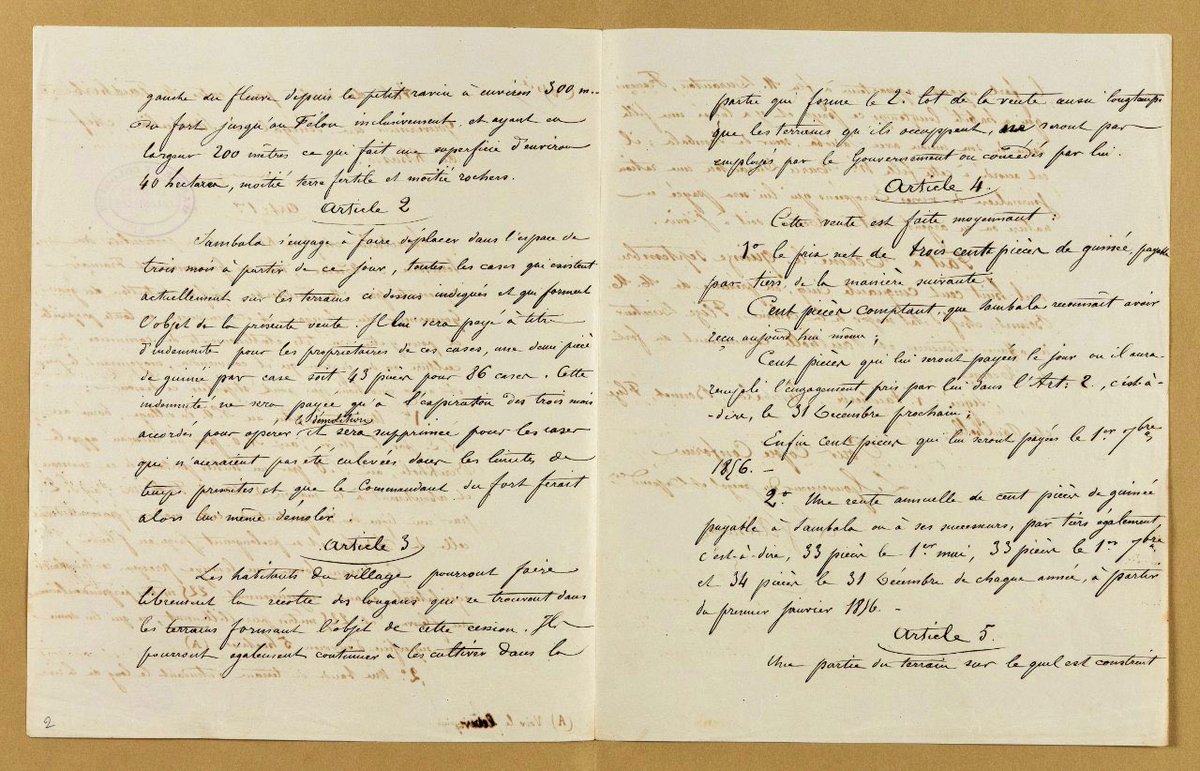 gauche du fleuve depuis le petit ravin à environ 300 m.
du fort jusqu'au Félou inclusivement et ayant en
largeur 200 mètres ce qui fait une superficie d'environ
40 hectares, moitié terre fertile et moitié rochers.
Article 2
Sambala s'engage à faire déplacer dans l'espace de
trois mois à partir de ce jour, toutes les cases qui existent
actuellement sur les terrains ci dessus indiqués et qui forment
l'objet de la présente vente. Il lui sera payé à titre
d'indemnité pour les propriétaires de ces cases, une demi pièce
de guinée par case soit 43 pièces pour 86 cases. Cette
indemnité ne sera payée qu'à l'expiration des trois mois
la démolition
accordés pour opérer et sera supprimée pour les cases
qui n'auraient pas été enlevées dans les limites de
temps prescrites et que le Commandant du fort ferait
alors lui même démolir.
Article 3
Les habitants du village pourront faire
librement la récolte des lougans qui se trouvent dans
les terrains formant l'objet de cette cession. Ils
pourront également continuer à les cultiver dans la
2
partie qui forme le 2e lot de la vente aussi longtemps
que les terrains qu'ils occuppent, ne seront pas
employés par le Gouvernement ou concédés par lui.
Article 4.
Cette vente est faite moyennant :
1o le prix net de trois cents pièces de guinée, payable
par tiers de la manière suivante :
Cent pièces comptant, que Sambala reconnait avoir
reçu aujourd'hui même ;
Cent pièces qui lui seront payées le jour ou il aura
rempli l'engagement pris par lui dans l'Art. 2, c'est-à-
-dire, le 31 Décembre prochain ;
Enfin cent pièces qui lui seront payés le 1er 7bre,
1856. -
2o Une rente annuelle de cent pièces de guinée
payable à Sambala ou à ses successeurs, par tiers également
c'est-à-dire, 33 pièces le 1er mai, 33 pièces le 1er 7bre,
et 34 pièces le 31 Décembre de chaque année, à partir
du premier janvier 1856. -
Article 5.
Une partie du terrain sur le quel est construit